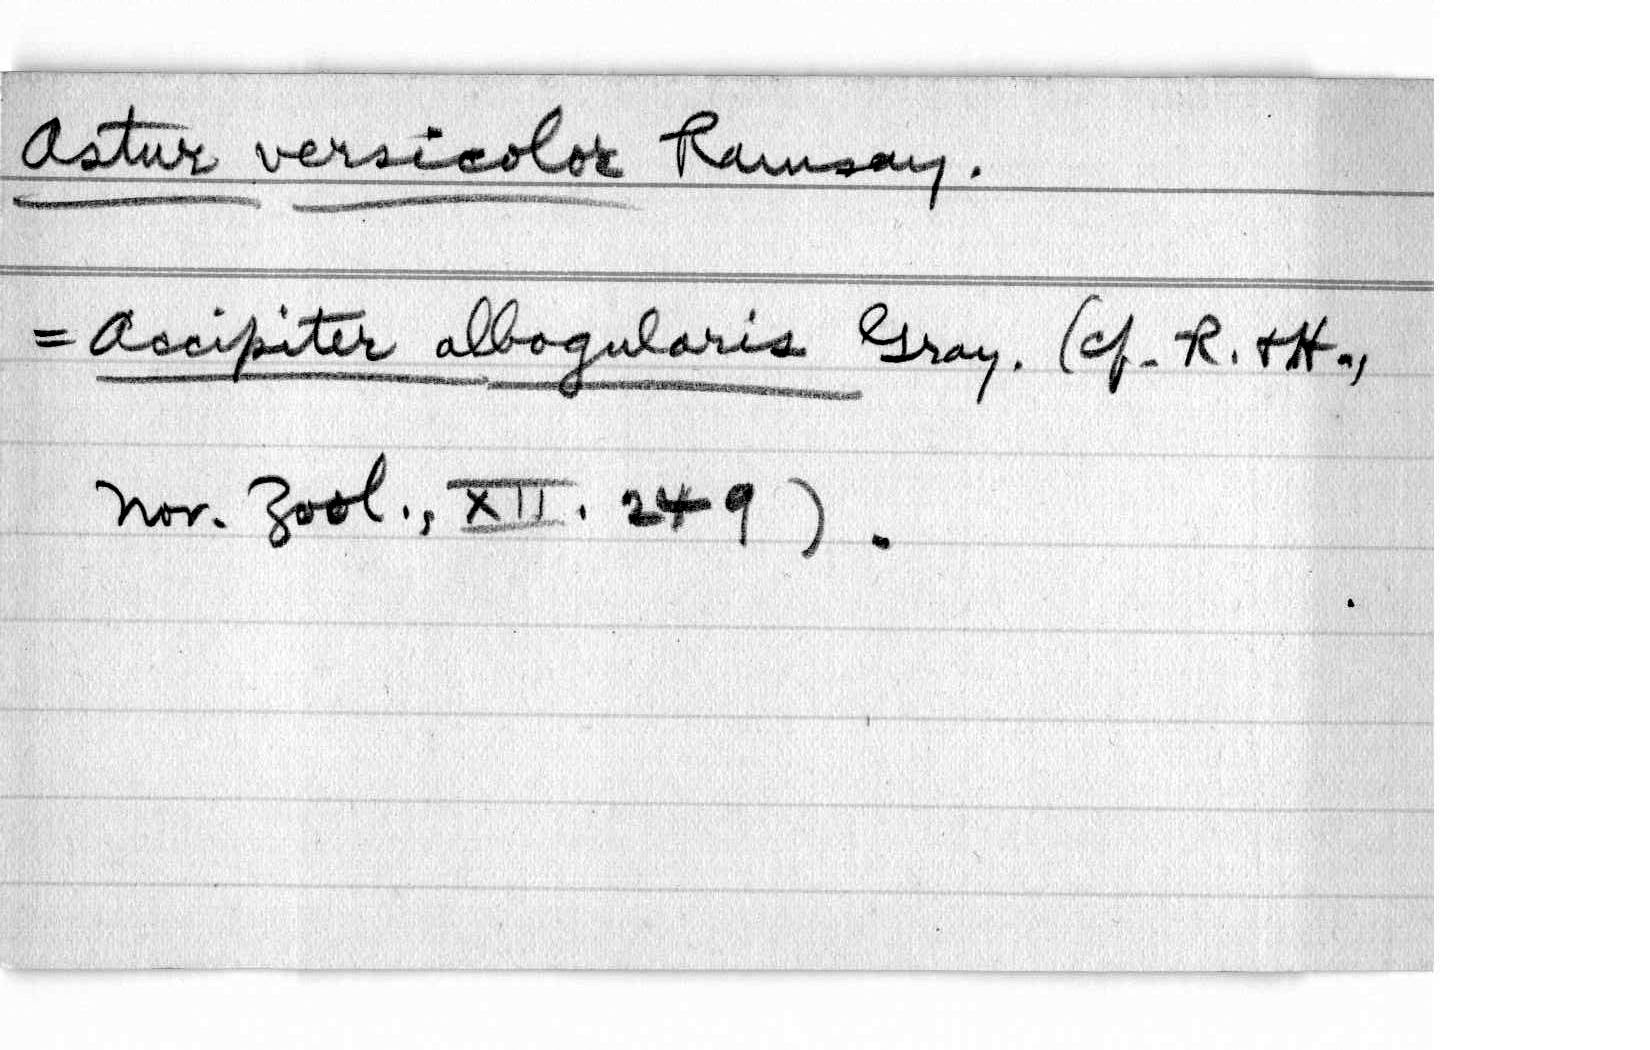 Astur versicolor Ramsay.
= Accipiter albogularis Gray. (cf. R. & H.,
Nov. Zool., XII. 249).